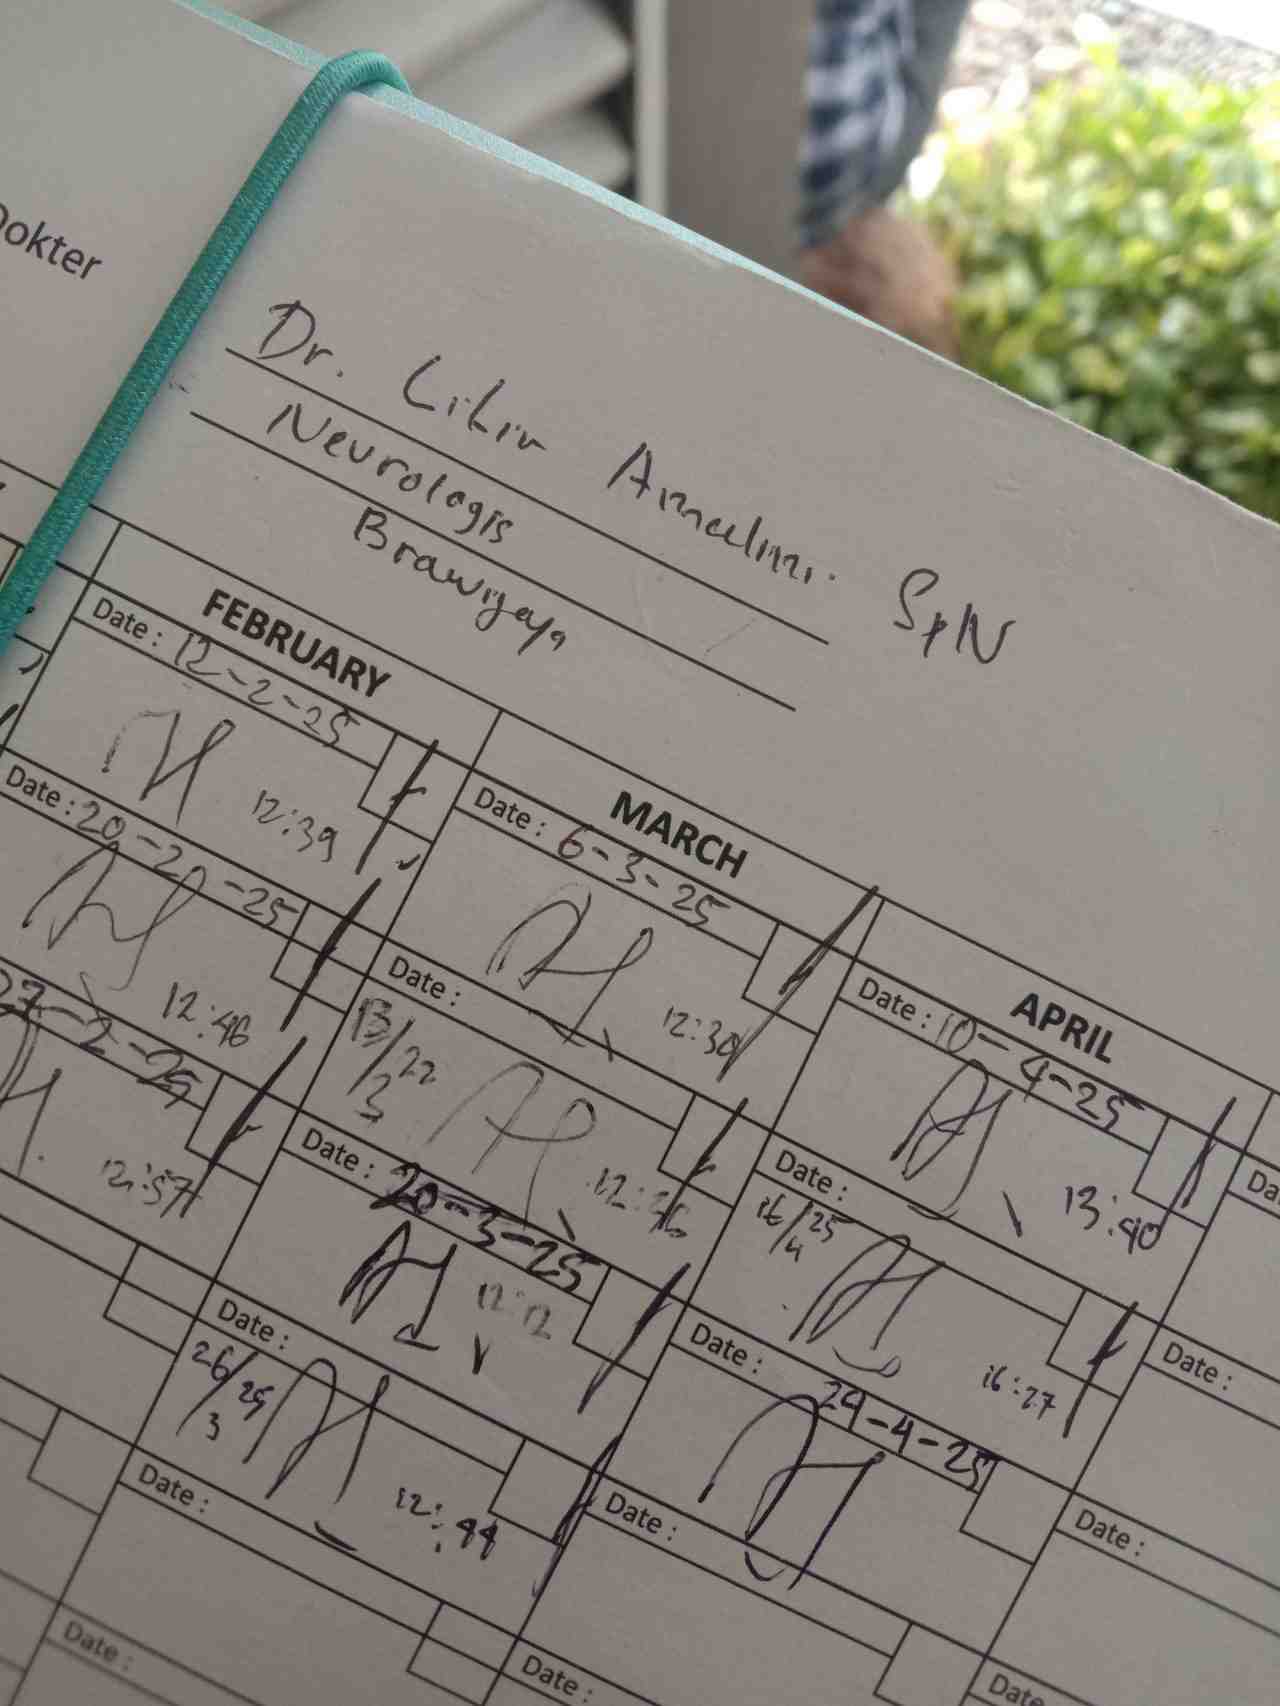 Dokter
Dr. Lilir Amalini. SpN
Neurologis
Brawijaya
FEBRUARY
Date : 12-2-25
12:39
Date : 20-20-25
12:46
27-2-25
12:57
MARCH
Date : 6-3-25
12:30
Date :
13/3 22
Date : 20-3-25
12:12
Date :
26/3 25
12:44
Date :
Date :
APRIL
Date : 10-4-25
13:40
Date :
16/4 25
16:27
Date :
24-4-25
Date :
Date :
Da
Date :
Date :
Date